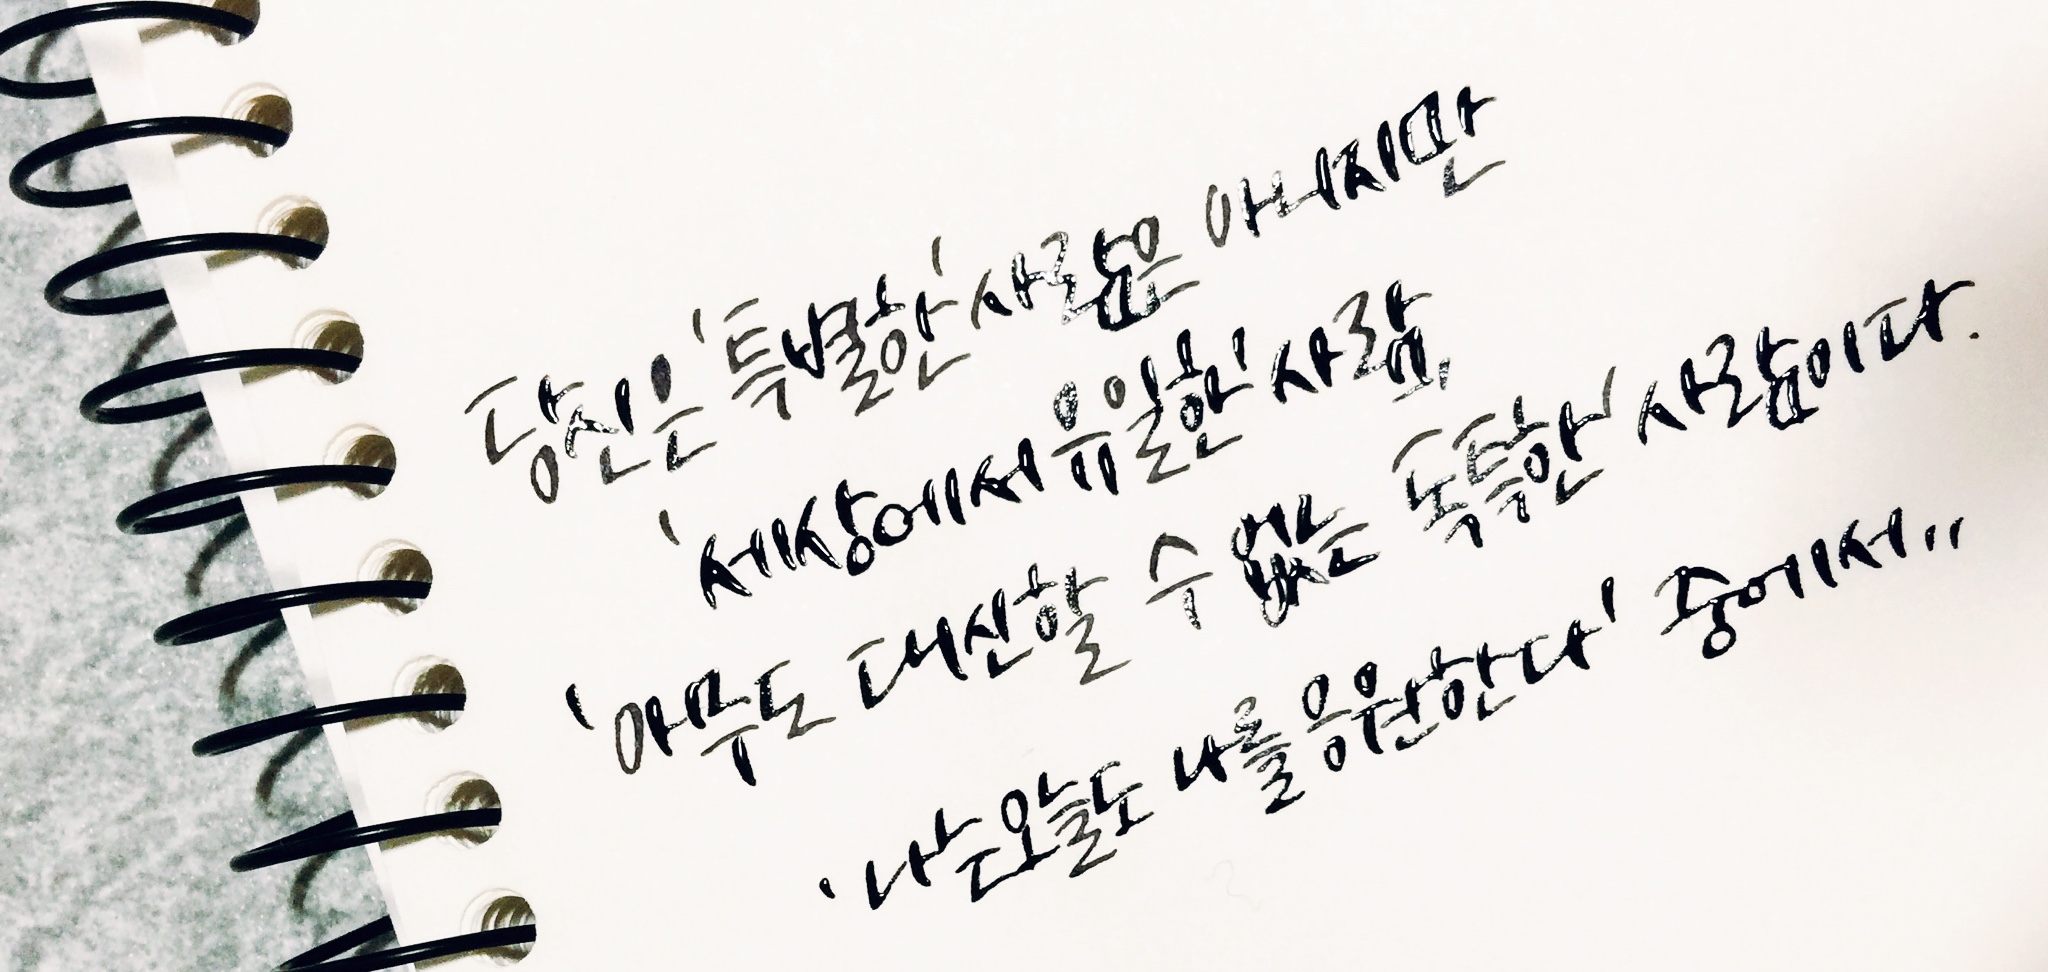 당신은 '특별한' 사람은 아니지만
'세상에서 유일한' 사람,
'아무도 대신할 수 없는 독특한' 사람이다.
'나는 오늘도 나를 응원한다' 중에서..